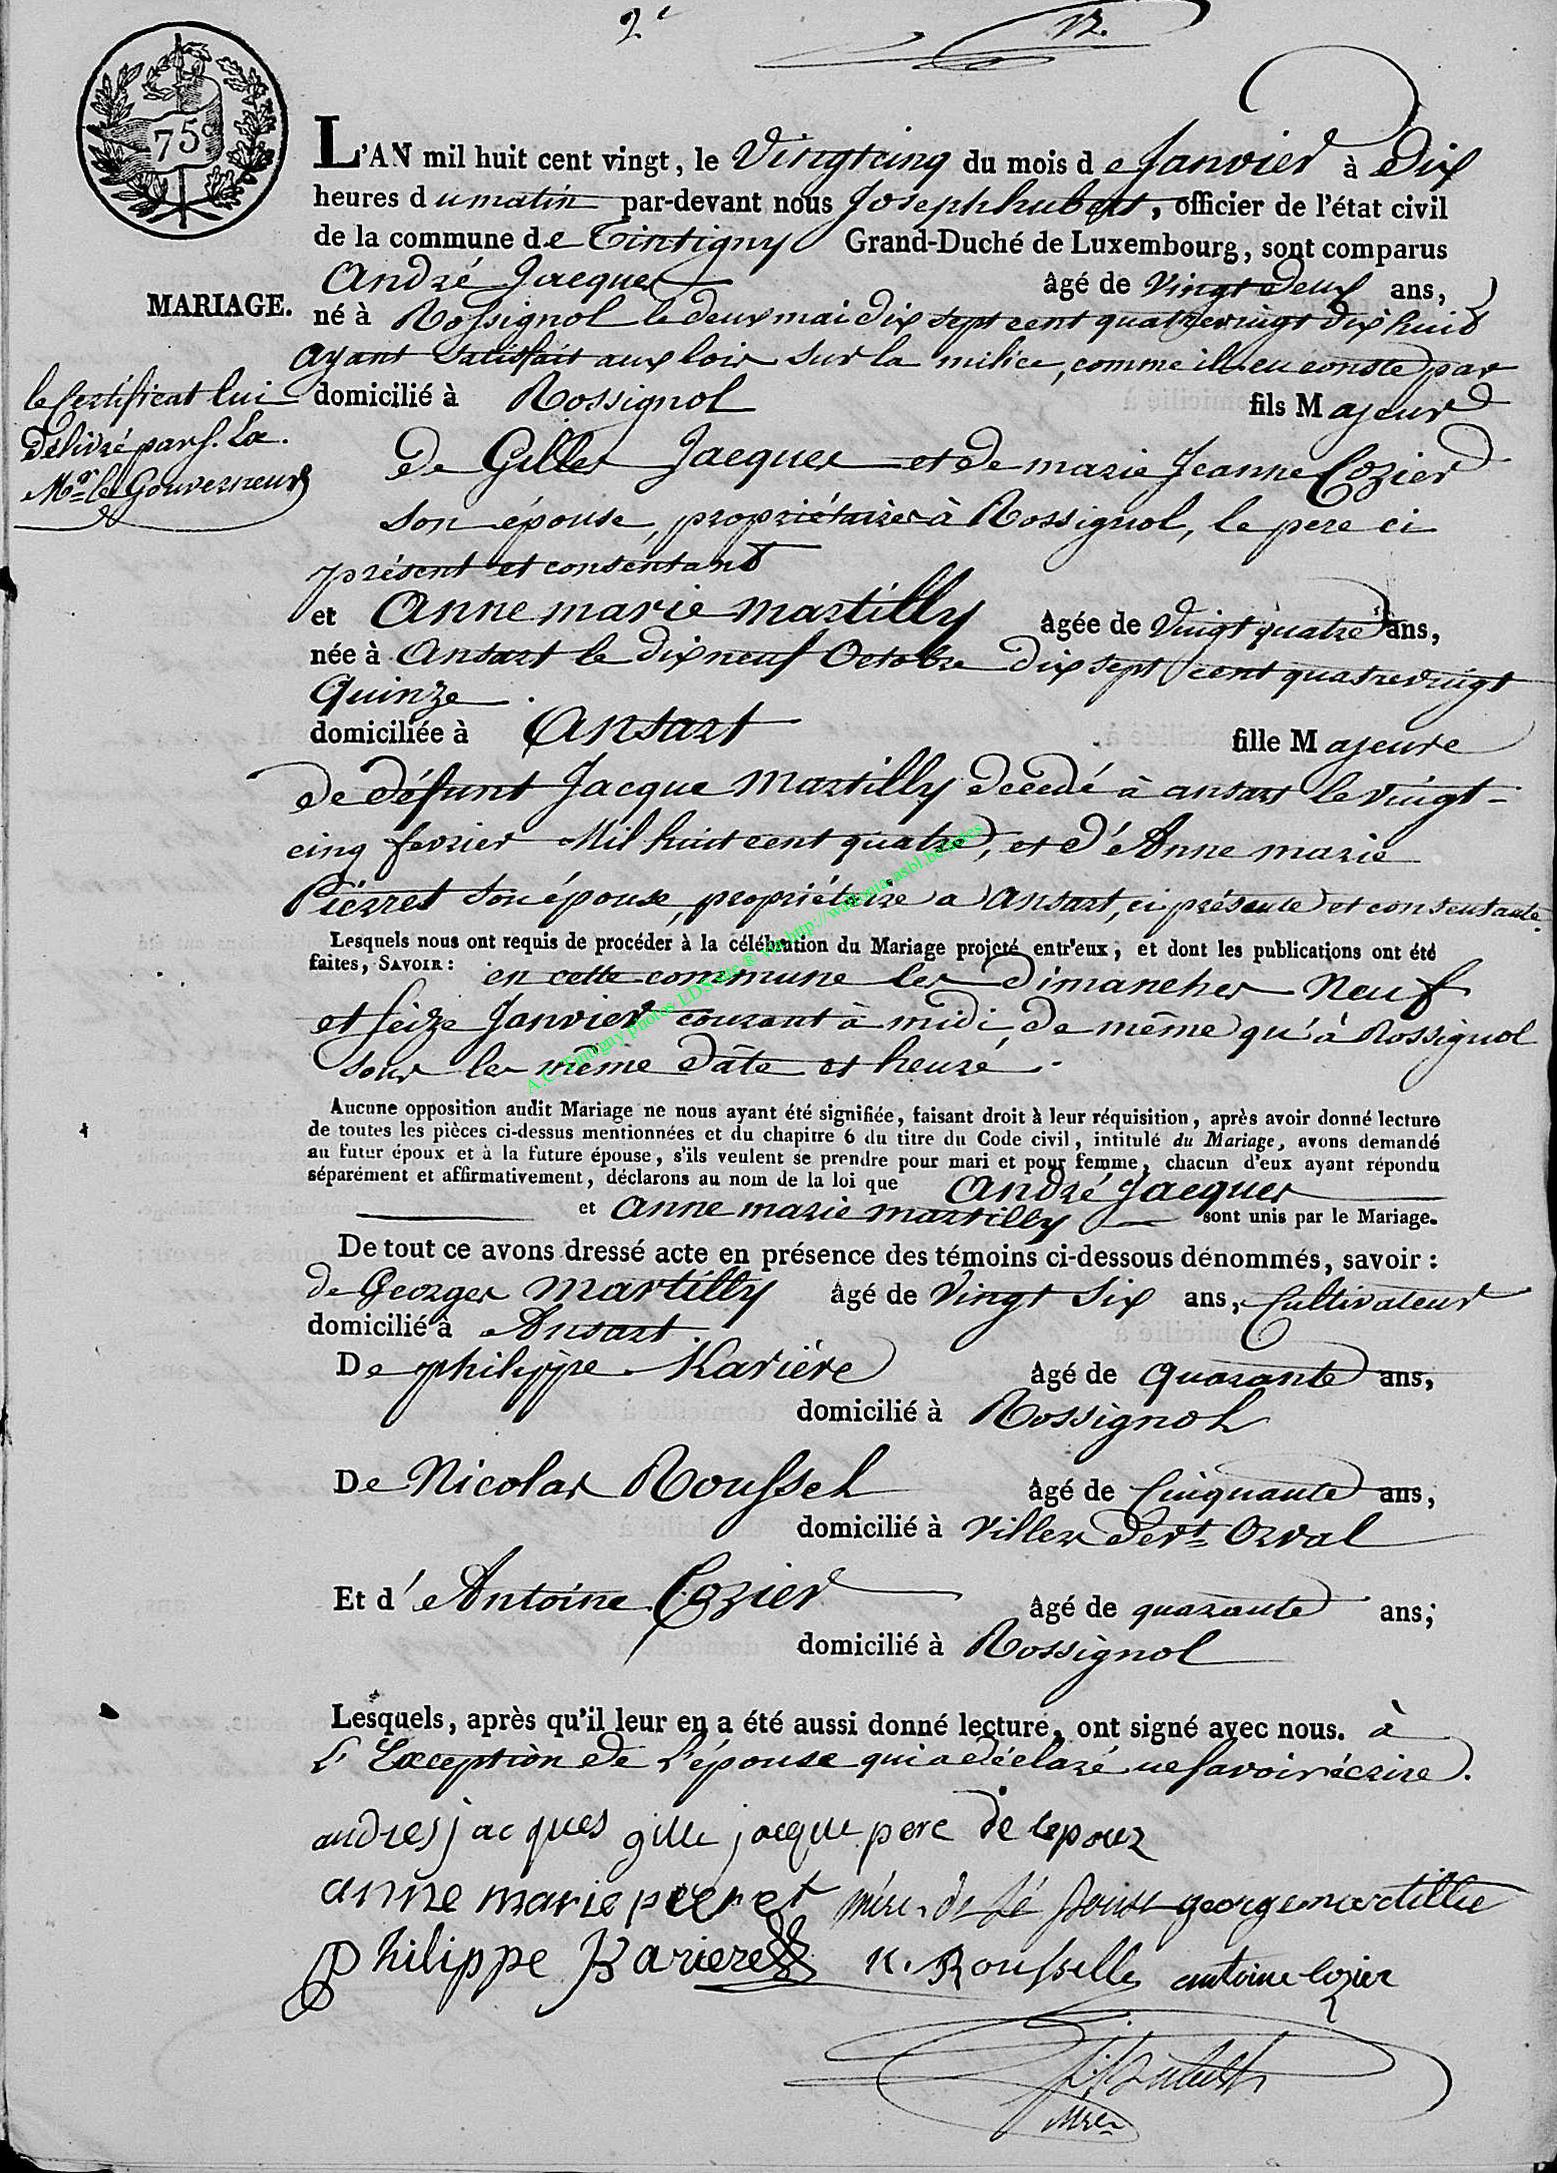 2e 12.
75c
L'AN mil huit cent vingt, le Vingtcinq du mois de Janvier à Dix
heures du matin par-devant nous Joseph hubert, officier de l'état civil
de la commune de Tintigny Grand-Duché de Luxembourg, sont comparus
André Jacques âgé de Vingt Deux ans,
MARIAGE.
né à Rossignol le deux mai dix sept cent quatrevingt dix huit
ayant satisfait aux loix sur la milice, comme il en conste par
le Certificat lui
Délivré par S. Ex.
Mr. le Gouverneur
domicilié à Rossignol fils Majeur
de Gilles Jacques et de marie Jeanne Cozier
son épouse, propriétaires à Rossignol, le pere ci
présent et consentant
et Anne marie martilly âgée de Vingt quatre ans,
née à Ansart le dix neuf Octobre Dix sept cent quatrevingt
Quinze.
domiciliée à Ansart fille Majeure
de défunt Jacque Martilly décedé à ansart le vingt-
cinq fevrier Mil huit cent quatre, et d'Anne marie
Pierret son épouse, propriétaire a Ansart, ci présente et consentante.
Lesquels nous ont requis de procéder à la célébration du Mariage projeté entr'eux, et dont les publications ont été
faites, SAVOIR: en cette commune les Dimanches Neuf
et seize Janvier courant à midi, de même qu'à Rossignol
sous les même date et heure.
A.C. Tintigny photos LDS site ® via http://wallonia-asbl.be/actes
Aucune opposition audit Mariage ne nous ayant été signifiée, faisant droit à leur réquisition, après avoir donné lecture
de toutes les pièces ci-dessus mentionnées et du chapitre 6 du titre du Code civil, intitulé du Mariage, avons demandé
au futur époux et à la future épouse, s'ils veulent se prendre pour mari et pour femme, chacun d'eux ayant répondu
séparément et affirmativement, déclarons au nom de la loi que André Jacques
et anne marie martilly sont unis par le Mariage.
De tout ce avons dressé acte en présence des témoins ci-dessous dénommés, savoir:
de Georges Martilly âgé de Vingt Six ans, Cultivateur
domicilié à Ansart
De philippe Kariere âgé de Quarante ans,
domicilié à Rossignol
De Nicolas Roussel âgé de Cinquante ans,
domicilié à Villers devt. Orval
Et d'Antoine Cozier âgé de quarante ans;
domicilié à Rossignol
Lesquels, après qu'il leur en a été aussi donné lecture, ont signé avec nous. à
L'Exception de L'épouse qui a déclaré ne savoir écrire.
andres jacques gille jacque pere de lepouz
anne marie pierret mère de lé pouse george martillie
Philippe Kariere N. Rousselle antoine Cozier